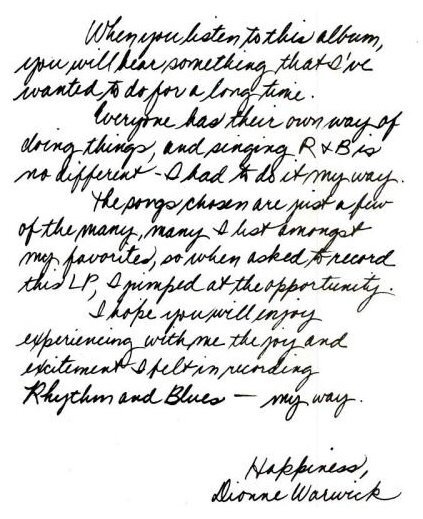 When you listen to this album,
you will hear something that I've
wanted to do for a long time.
Everyone has their own way of
doing things, and singing R & B is
no different - I had to do it my way.
The songs chosen are just a few
of the many, many I list amongst
my favorites, so when asked to record
this LP, I jumped at the opportunity.
I hope you will enjoy
experiencing with me the joy and
excitement I felt in recording
Rhythm and Blues — my way.
Happiness,
Dionne Warwick